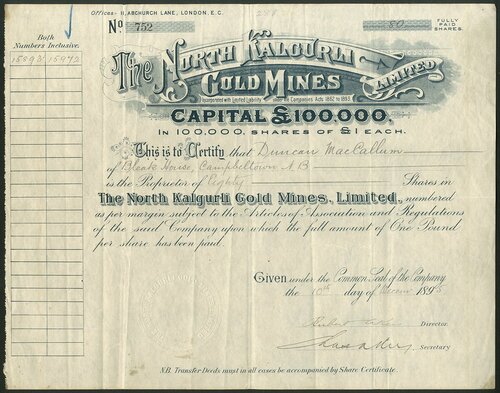 Offices:- 11, ABCHURCH LANE, LONDON, E.C.
No 752
80 FULLY PAID SHARES.
Both Numbers Inclusive.
The NORTH KALGURLI GOLD MINES LIMITED
Incorporated with Limited Liability under the Companies Acts 1862 to 1893
CAPITAL £100,000.
IN 100,000, SHARES OF £1 EACH.
This is to Certify that Duncan MacCallum
of Bleak House, Campbeltown N.B
is the Proprietor of Eighty Shares in
The North Kalgurli Gold Mines, Limited, numbered
as per margin subject to the Articles of Association and Regulations
of the said Company upon which the full amount of One Pound
per share has been paid.
Given under the Common Seal of the Company
the 10th day of 1895
Director.
Secretary
N.B. Transfer Deeds must in all cases be accompanied by Share Certificate.